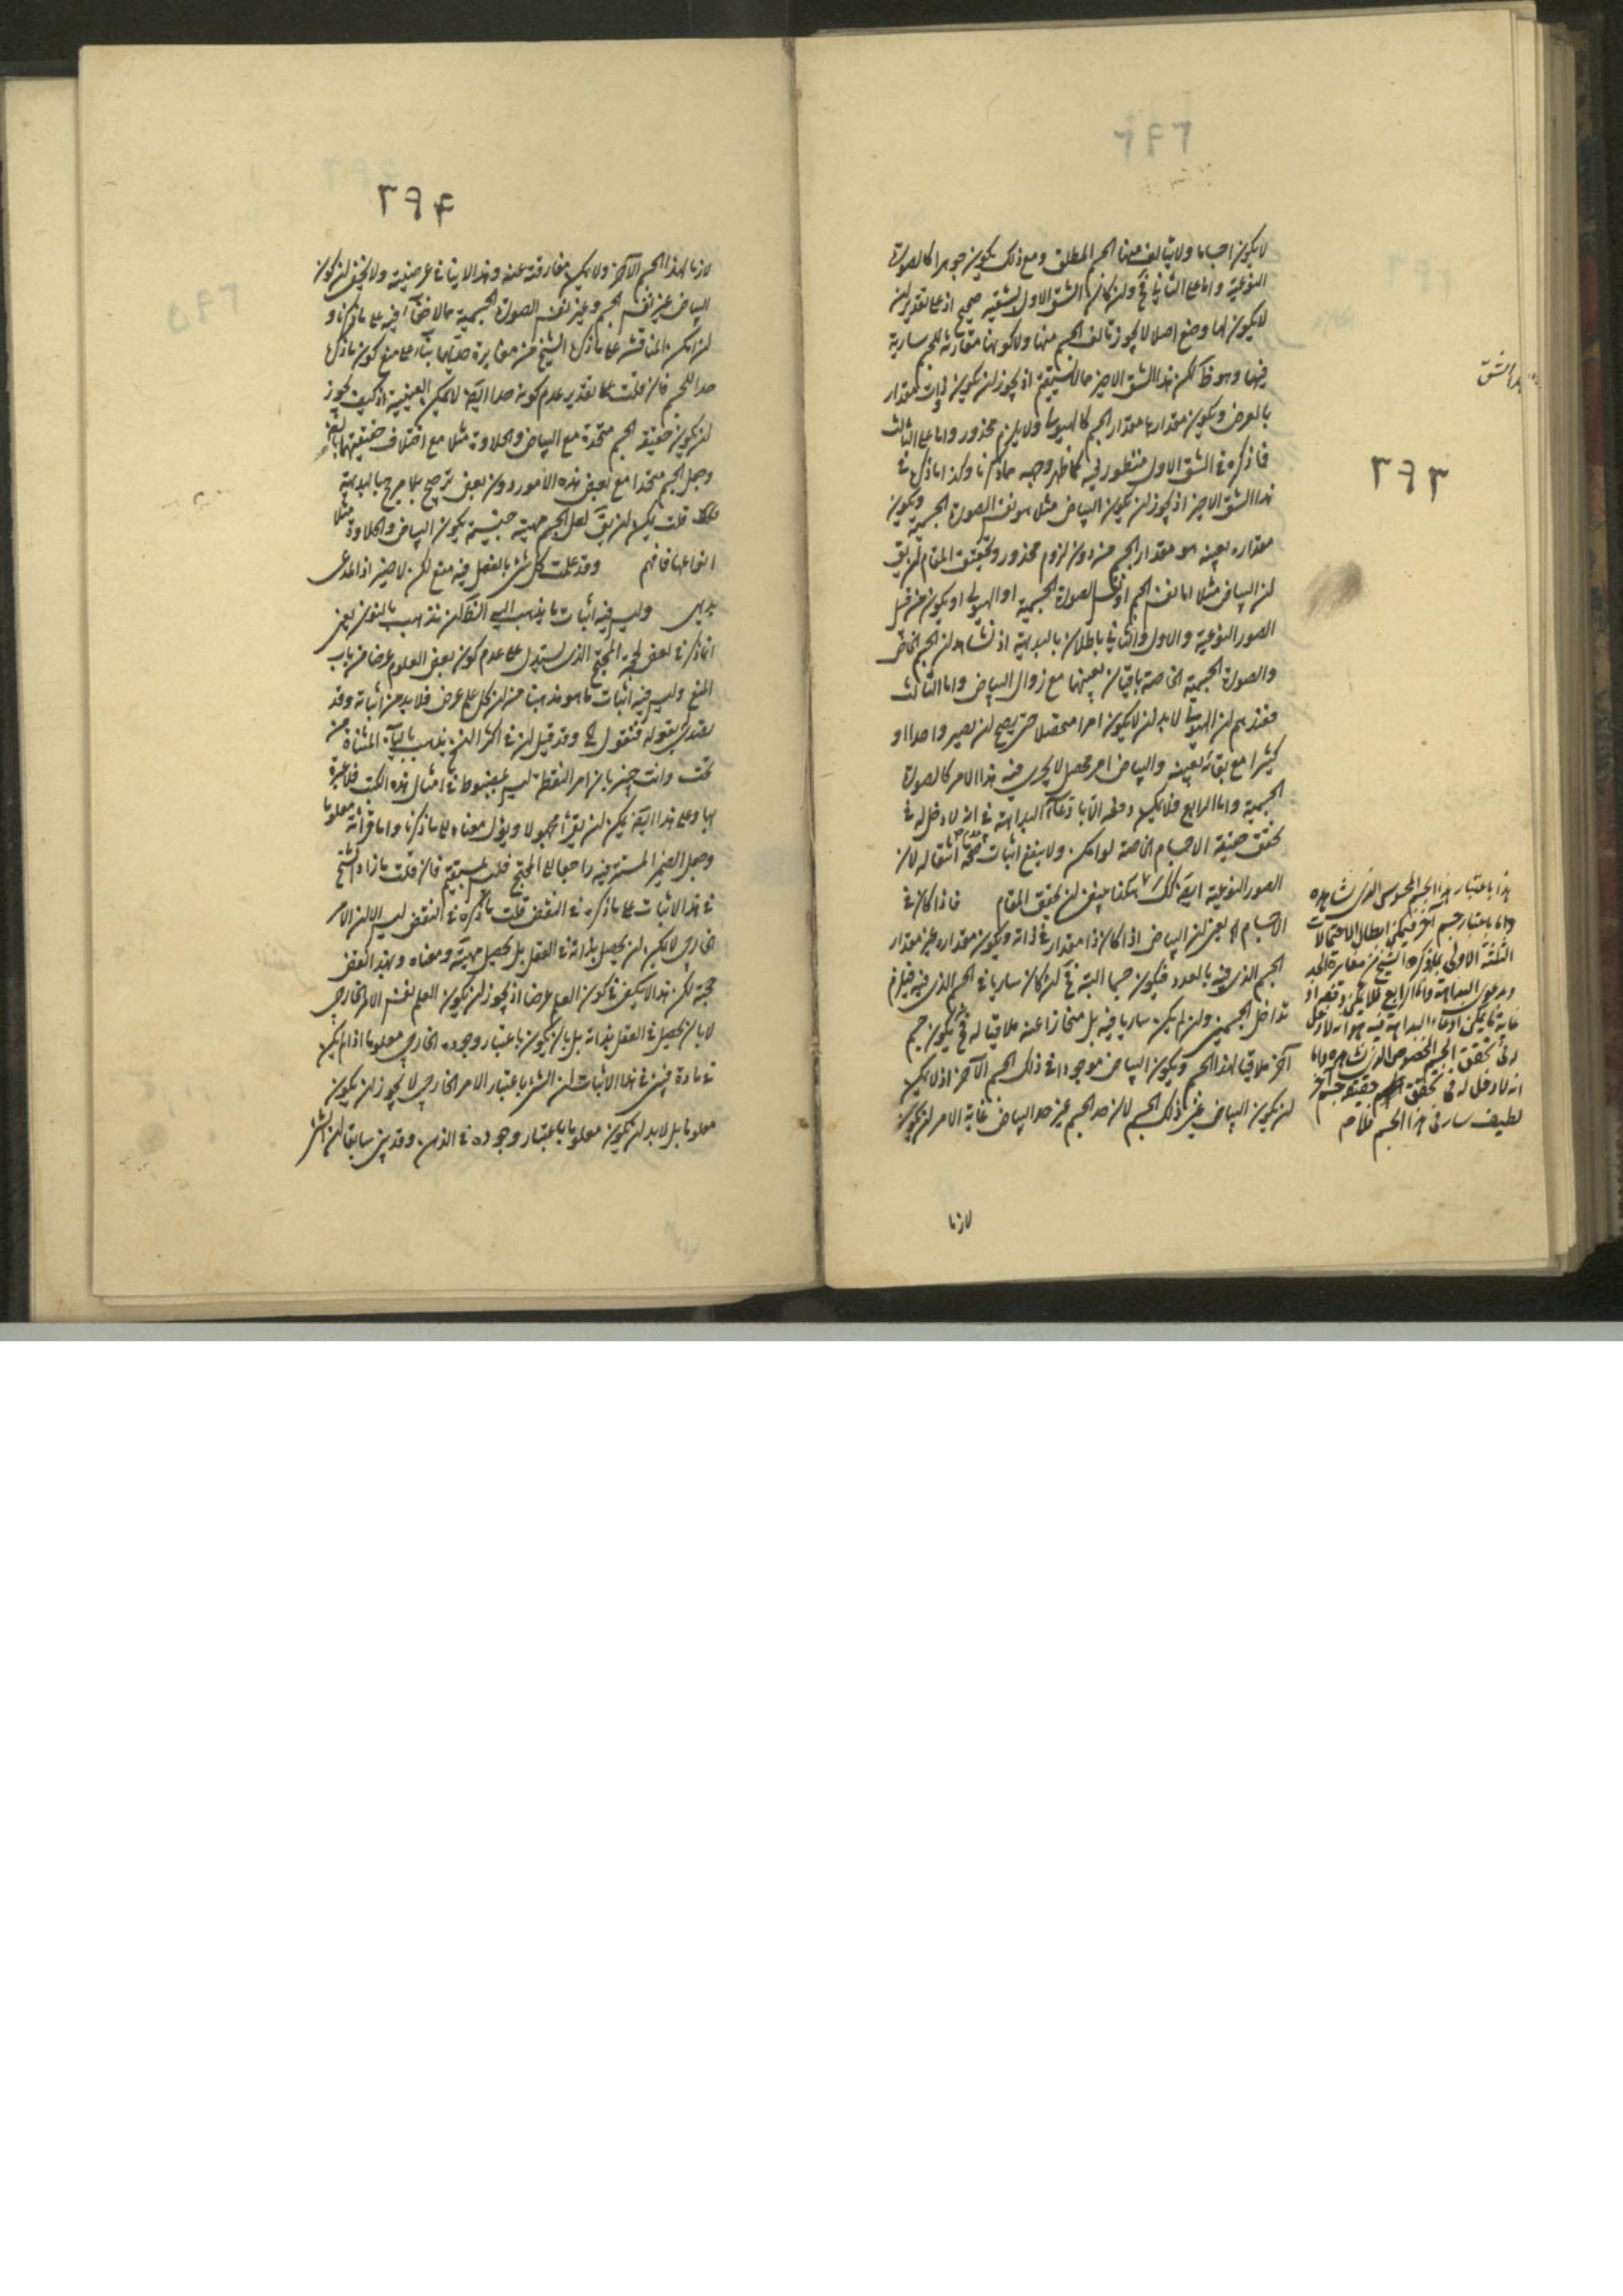 ٢٩٣
لا يكون اجساما ولا يتالف منها الجسم المطلق ومع ذلك يكون جوهرا كالصورة
النوعية واما على الثاني فلان كان الشق الاول لشقيه صحيح اذ على تقدير ان
لا يكون لها وضع اصلا لا يجوز تالف الجسم منها ولا كونها مقارنة للجسم سارية
فيها وهو ظ لكن هذا الشق الاخير مما لا يستقيم اذ يجوز ان يكون ذات مقدار
بالعرض ويكون مقدارها مقدار الجسم كالهيولى ولا يلزم محذور واما على الثالث
فما ذكره في الشق الاول منظور فيه كما ظهر وجهه مما ذكرنا وكذا ما ذكره في
هذا الشق الاخير اذ يجوز ان يكون البياض مثلا هو نفس الصورة الجسمية ويكون
مقداره بعينه هو مقدار الجسم من دون لزوم محذور وتحقيق المقام ان يق
ان البياض مثلا اما نفس الجسم او نفس الصورة الجسمية او الهيولى او يكون من قبيل
الصور النوعية والاول والثاني باطلان بالبديهة اذ نشاهد ان الجسم الخاص
والصورة الجسمية الخاصة باقيان بعينهما مع زوال البياض واما الثالث
فعندهم ان الهيولى لابد ان لا يكون امرا متحصلا حتى يصح ان يصير واحدا او
كثيرا مع بقائه بعينه والبياض امر محصل لا يجري فيه هذا الامر كالصورة
الجسمية واما الرابع فلا يمكن دفعه الا بادعاء البداهة في انه لا دخل له في
تحقق حقيقة الاجسام الخاصة لو امكن ولا ينفع اثبات صحة انتقاله لان
الصور النوعية ايض كذلك هكذا ينبغي ان يحقق المقام فاذا كان في
الاجسام الخ يعني ان البياض اذا كان ذا مقدار في ذاته ويكون مقداره غير مقدار
الجسم الذي فيه بالعدد فيكون جسما البتة فح ان كان ساريا في الجسم الذي فيه فيلزم
تداخل الجسمين وان لم يكن ساريا فيه بل منحازا عنه ملاقيا له فح يكون جسم
آخر ملاقيا لهذا الجسم ويكون البياض موجودا في ذلك الجسم الآخر اذ لا يمكن
ان يكون البياض عين ذلك الجسم لان حد الجسم غير حد البياض غاية الامر ان يكون
لازما
هذا باعتبار هذا الجسم المحسوس الذي نشاهده
واما باعتبار جسم آخر فيمكن ابطال الاحتمالات
الثلثة الاولى بما ذكره الشيخ من مغايرة الحد
ودعوى البداهة واما الرابع فلا يمكن دفعه اذ
غاية ما يمكن ادعاء البداهة فيه هو انه لا دخل
له في تحقق الجسم المخصوص الذي نشاهده واما
انه لا دخل له في تحقق حقيقة جسم آخر
لطيف سار في هذا الجسم فلا م
٢٩٤
لازما لهذا الجسم الآخر ولا يمكن مفارقته عنه وهذا لا ينافي عرضيته ولا يخفى ان كون
البياض غير نفس الجسم وغير نفس الصورة الجسمية مما لا خفاء فيه على ما ذكرنا و
ان امكن المناقشة على ما ذكره الشيخ من مغايرة حديهما بناء على منع كون ما ذكره
حدا للجسم فان قلت على تقدير عدم كونه حدا ايض لا يمكن العينية اذ كيف يجوز
ان يكون حقيقة الجسم متحدة مع البياض والحلاوة مثلا مع اختلاف حقيقتهما
وجعل الجسم متحدا مع بعض هذه الامور دون بعض ترجيح بلا مرجح بالبديهة
قلت يمكن ان يق لعل الجسم مهية جنسية يكون البياض والحلاوة مثلا
انواعها فافهم وقد علمت كل شيء بالفعل فيه منع لكن لا ضير اذ المدعى
بديهي وليس فيه اثبات ما يذهب اليه الظ ان نذهب بالنون يعني
انما ذكر في بعض حجة المحتج الذي يستدل على عدم كون بعض العلوم عرضا من باب
المنع وليس فيه اثبات ما هو مذهبنا من ان كل علم عرض فلابد من اثباته وقد
يقتدى بقوله فنقول الخ وقد قيل ان في اكثر النسخ يذهب بالياء المثناة من
تحت وانت خبير بان امر النقطة ليس بمضبوط في امثال هذه الكتب فلا عبرة
بها وعلى هذا ايض يمكن ان يقرأ مجهولا ويؤل معناه الى ما ذكرنا واما قرائته معلوما
وجعل الضمير المستتر فيه راجعا الى المحتج فلا يستقيم فان قلت ما زاد الشيخ
في هذا الاثبات على ما ذكره في النقض قلت ما ذكره في النقض ليس الا ان الامر
الخارجي لا يمكن ان يحصل بذاته في العقل بل يحصل مهيته ومعناه وبهذا انتقض
حجته لكن هذا لا يكفي في كون العلم عرضا اذ يجوز ان يكون العلم نفس الامر الخارجي
لا بان يحصل في العقل بذاته بل بان يكون باعتبار وجوده الخارجي معلوما اذا لم يكن
في مادة فبين في هذا الاثبات ان الشيء باعتبار الامر الخارجي لا يجوز ان يكون
معلوما بل لابد ان يكون معلوما باعتبار وجوده في الذهن وقد بين سابقا ان الشيء